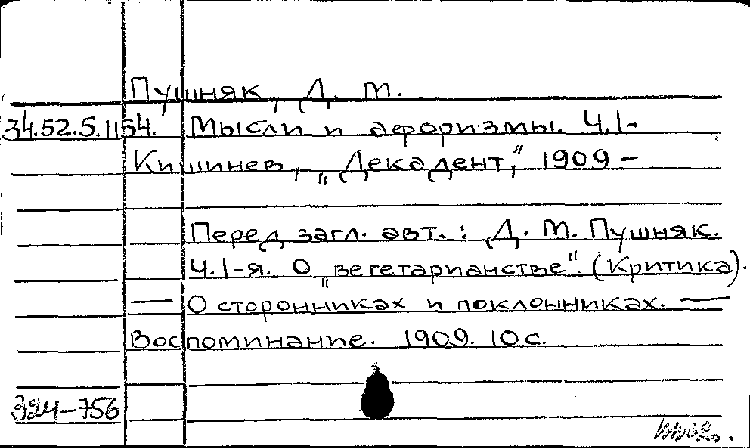 Пушняк, Д. М.
34.52.5.1154. Мысли и афоризмы. Ч.I-
Кишинев, „Декадент," 1909 –
Перед загл. авт.: Д. М. Пушняк.
Ч.I-я. О „вегетарианстве". (Критика).
— О сторонниках и поклонниках. —
Воспоминание. 1909. 10 с.
324-756